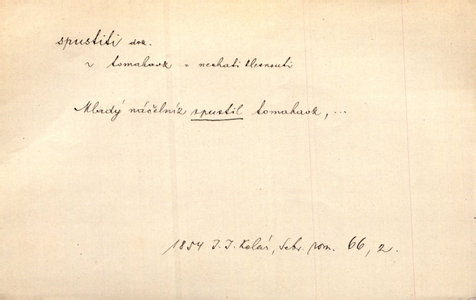 spustiti dok.
~ tomahavk = nechati klesnouti
Mladý náčelník spustil tomahavk, ...
1854 J. J. Kolár, Sebr. rom. 66, 2.